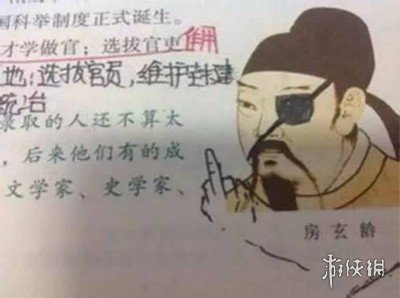 科举制度正式诞生。
才学做官；选拔官吏 作用
地：选拔官员，维护封建
统治
录取的人还不算太
，后来他们有的成
文学家、史学家、
房玄龄
游侠网